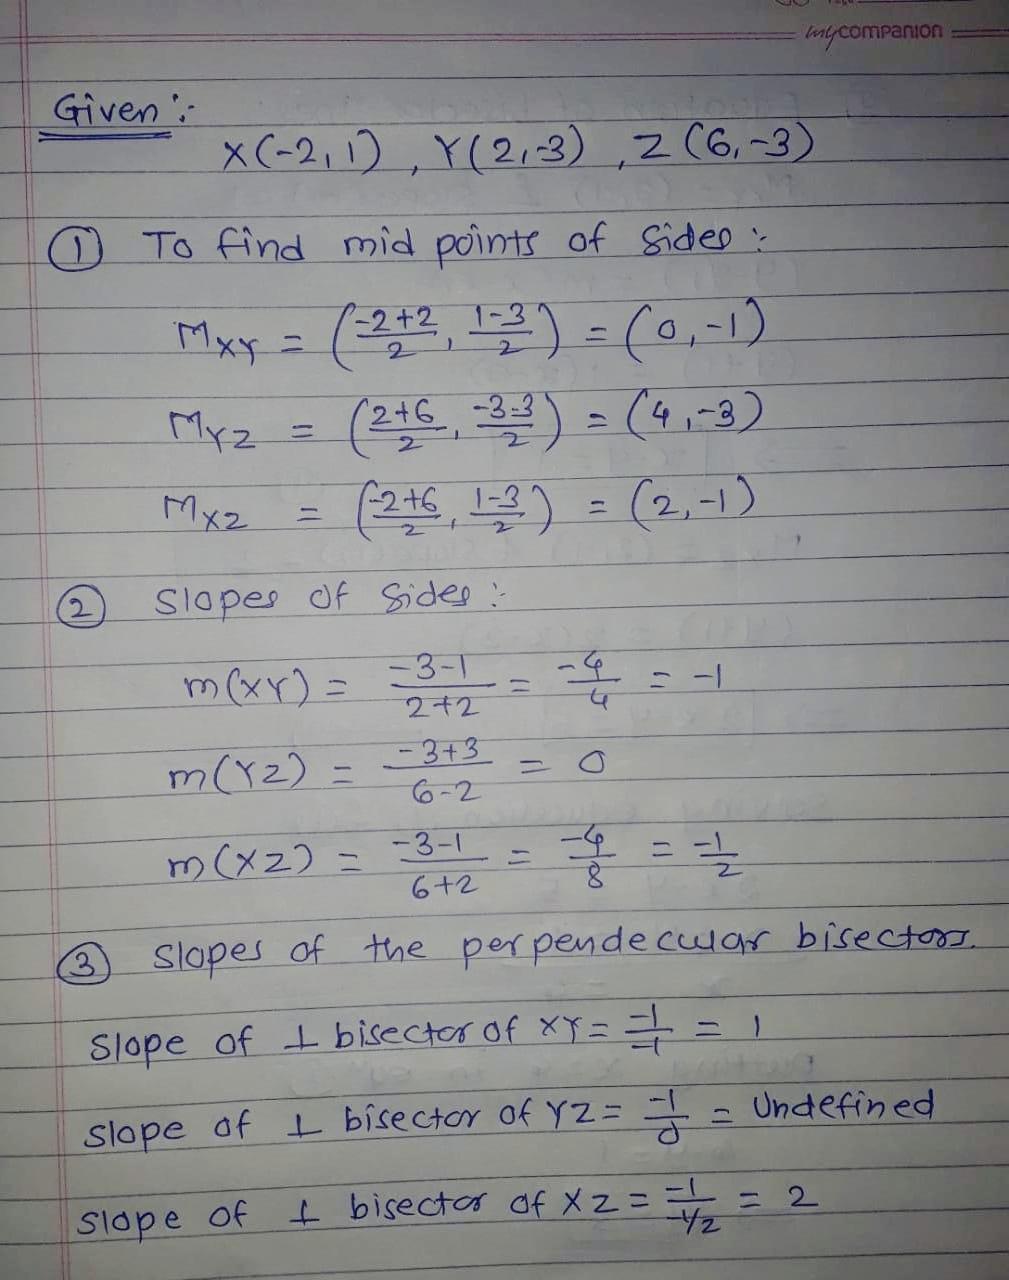 mycompanion
Given :-
X(-2, 1) , Y(2,-3) , Z(6,-3)
① To find mid points of sides :-
Mxy = (-2+2/2, 1-3/2) = (0,-1)
Myz = (2+6/2, -3-3/2) = (4,-3)
Mxz = (-2+6/2, 1-3/2) = (2,-1)
② Slopes of sides :-
m(XY) = -3-1/2+2 = -4/4 = -1
m(YZ) = -3+3/6-2 = 0
m(XZ) = -3-1/6+2 = -4/8 = -1/2
③ Slopes of the perpendecular bisectors.
Slope of ⊥ bisector of XY = -1/-1 = 1
Slope of ⊥ bisector of YZ = -1/0 = Undefined
Slope of ⊥ bisector of XZ = -1/-1/2 = 2